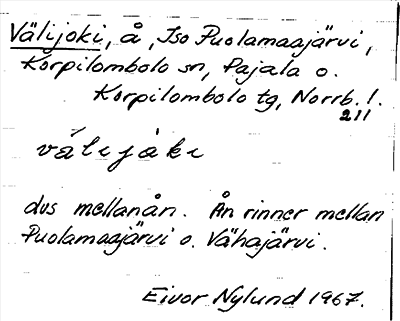 Välijoki, å, Iso Puolamaajärvi,
Korpilombolo sn, Pajala o.
Korpilombolo tg, Norrb. l.
211
välijåki
dvs mellanån. Ån rinner mellan
Puolamaajärvi o. Vähajärvi.
Eivor Nylund 1967.